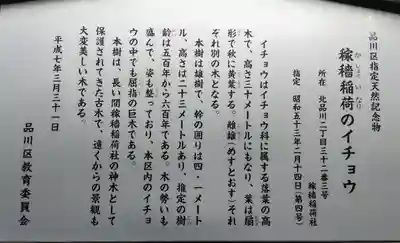 品川区指定天然記念物
稼穡稲荷のイチョウ
かしょくいなり
所在　北品川二丁目三十二番三号
稼穡稲荷社
指定　昭和五十三年二月十四日(第四号)
イチョウはイチョウ科に属する落葉の高
木で、高さ三十メートルにもなり、葉は扇
形で秋に黄葉する。雌雄(めすとおす)それ
ぞれ別の木となる。
本樹は雄樹で、幹の囲りは四・一メート
ル、高さは二十三メートルあり、推定の樹
齢は五百年から六百年である。木の勢いも
盛んで、姿も整っており、本区内のイチョ
ウの中でも屈指の巨木である。
本樹は、長い間稼穡稲荷社の神木として
保護されてきた古木で、遠くからの景観も
大変美しい木である。
平成七年三月三十一日
品川区教育委員会